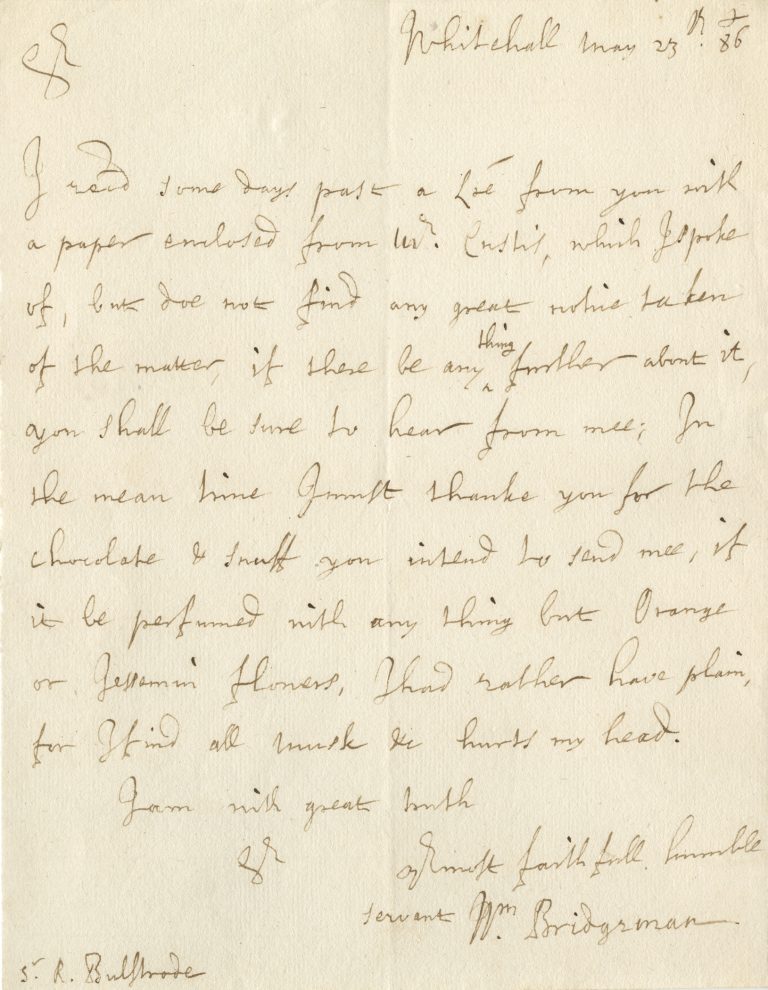 Whitehall May 23th 86
Sr
I recd some days past a Lre from you with
a paper enclosed from Mr. Custis, which I spoke
of, but doe not find any great notice taken
of the matter, if there be any thing further about it,
you shall be sure to hear from mee; In
the mean time I must thanke you for the
chocolate & snuff you intend to send mee, if
it be perfumed with any thing but Orange
or Jessemin flowers, I had rather have plain,
for I find all musk &c hurts my head.
I am with great truth
Sr
yr most faithfull humble
servant Wm. Bridgeman
Sr R. Bulstrode